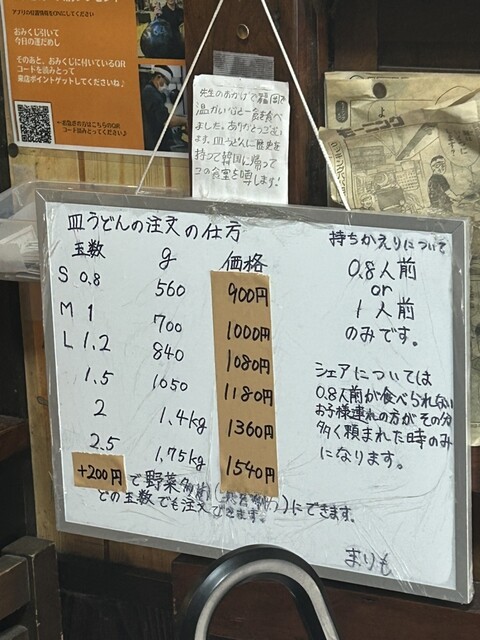 アプリの位置情報をONにしてください
おみくじ引いて
今日の運だめし
そのあと、おみくじに付いているQR
コードを読みとって
来店ポイントゲットしてくださいね♪
コード読みとってください♪
先生のおかげで福岡で
温かい心と一食を食べ
ました。ありがとうござい
ます。皿うどんに歴史を
持つて韓国に帰って
この食堂を噂します!
モーニング
皿うどんの注文の仕方
玉数 g 価格
S 0.8 560 900円
M 1 700 1000円
L 1.2 840 1080円
1.5 1050 1180円
2 1.4kg 1360円
2.5 1.75kg 1540円
+200円で野菜多前にできます。
どの玉数でも注文できます。
持ちかえりについて
0.8人前
or
1人前
のみです。
シェアについては
0.8人前が食べられない
お子様連れの方がその分
多く頼まれた時のみ
になります。
まりも